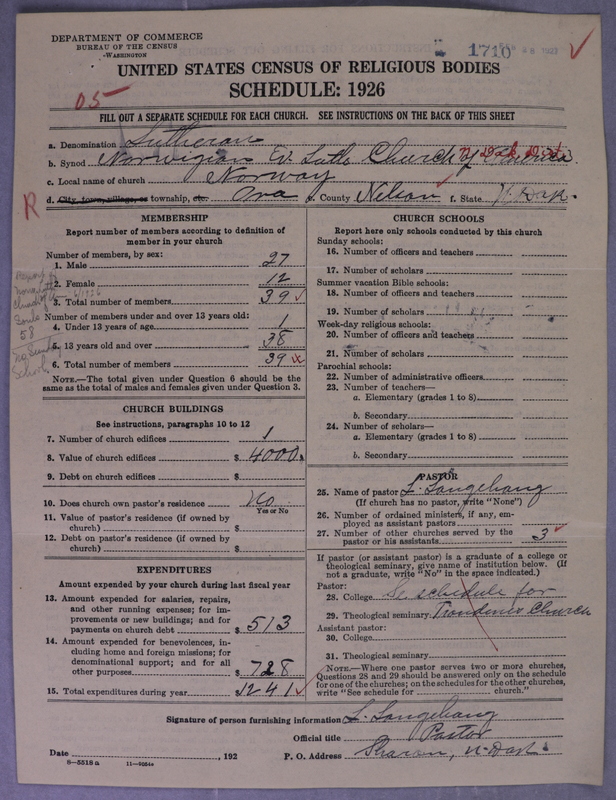 DEPARTMENT OF COMMERCE
BUREAU OF THE CENSUS
WASHINGTON
1710
UNITED STATES CENSUS OF RELIGIOUS BODIES
SCHEDULE: 1926
05-
FILL OUT A SEPARATE SCHEDULE FOR EACH CHURCH. SEE INSTRUCTIONS ON THE BACK OF THIS SHEET
a. Denomination Lutheran
b. Synod Norwegian Ev. Luth. Church of America N. Dak. Dist.
c. Local name of church Norway
d. City, town, village, or township, etc. Ora e. County Nelson f. State N. Dak.
R
MEMBERSHIP
Report number of members according to definition of member in your church
Number of members, by sex:
1. Male 27
2. Female 12
3. Total number of members 39
Number of members under and over 13 years old:
4. Under 13 years of age 1
5. 13 years old and over 38
6. Total number of members 39
NOTE.—The total given under Question 6 should be the same as the total of males and females given under Question 3.
58
no Sunday School
CHURCH BUILDINGS
See instructions, paragraphs 10 to 12
7. Number of church edifices 1
8. Value of church edifices $ 4000.
9. Debt on church edifices $
10. Does church own pastor's residence No
Yes or No
11. Value of pastor's residence (if owned by church) $
12. Debt on pastor's residence (if owned by church) $
EXPENDITURES
Amount expended by your church during last fiscal year
13. Amount expended for salaries, repairs, and other running expenses; for improvements or new buildings; and for payments on church debt $ 513
14. Amount expended for benevolences, including home and foreign missions; for denominational support; and for all other purposes $ 728
15. Total expenditures during year $ 1241
CHURCH SCHOOLS
Report here only schools conducted by this church
Sunday schools:
16. Number of officers and teachers
17. Number of scholars
Summer vacation Bible schools:
18. Number of officers and teachers
19. Number of scholars
Week-day religious schools:
20. Number of officers and teachers
21. Number of scholars
Parochial schools:
22. Number of administrative officers
23. Number of teachers—
a. Elementary (grades 1 to 8)
b. Secondary
24. Number of scholars—
a. Elementary (grades 1 to 8)
b. Secondary
PASTOR
25. Name of pastor L. Langehaug
(If church has no pastor, write "None")
26. Number of ordained ministers, if any, employed as assistant pastors
27. Number of other churches served by the pastor or his assistants 3
If pastor (or assistant pastor) is a graduate of a college or theological seminary, give name of institution below. (If not a graduate, write "No" in the space indicated.)
Pastor:
28. College Se schedule for
29. Theological seminary Church
Assistant pastor:
30. College
31. Theological seminary
NOTE.—Where one pastor serves two or more churches, Questions 28 and 29 should be answered only on the schedule for one of the churches; on the schedules for the other churches, write "See schedule for church."
Signature of person furnishing information L. Langehaug
Official title Pastor
Date , 192 P. O. Address Sharon, N-Dak.
8—5518 a